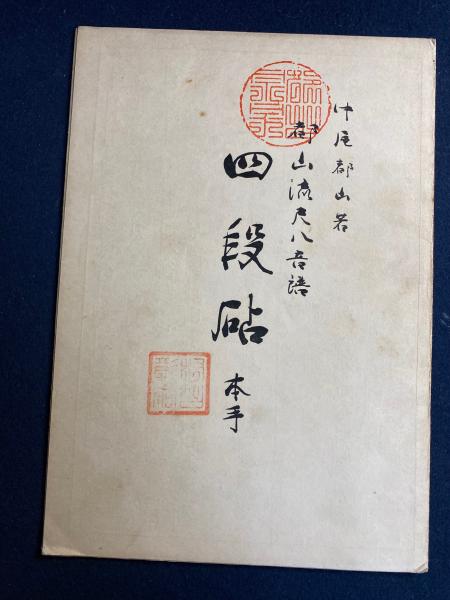 中尾都山著
都山流尺八音譜
四段砧 本手